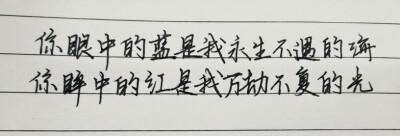 你眼中的蓝是我永生不遇的海
你眸中的红是我万劫不复的光